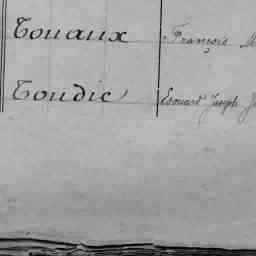 Touaux François
Toudic Edouard Joseph